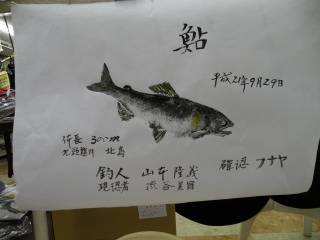 鮎
平成21年9月29日
体長 30cm
北島
釣人 山本 隆義
現認者 渋谷美賀
確認 フナヤ